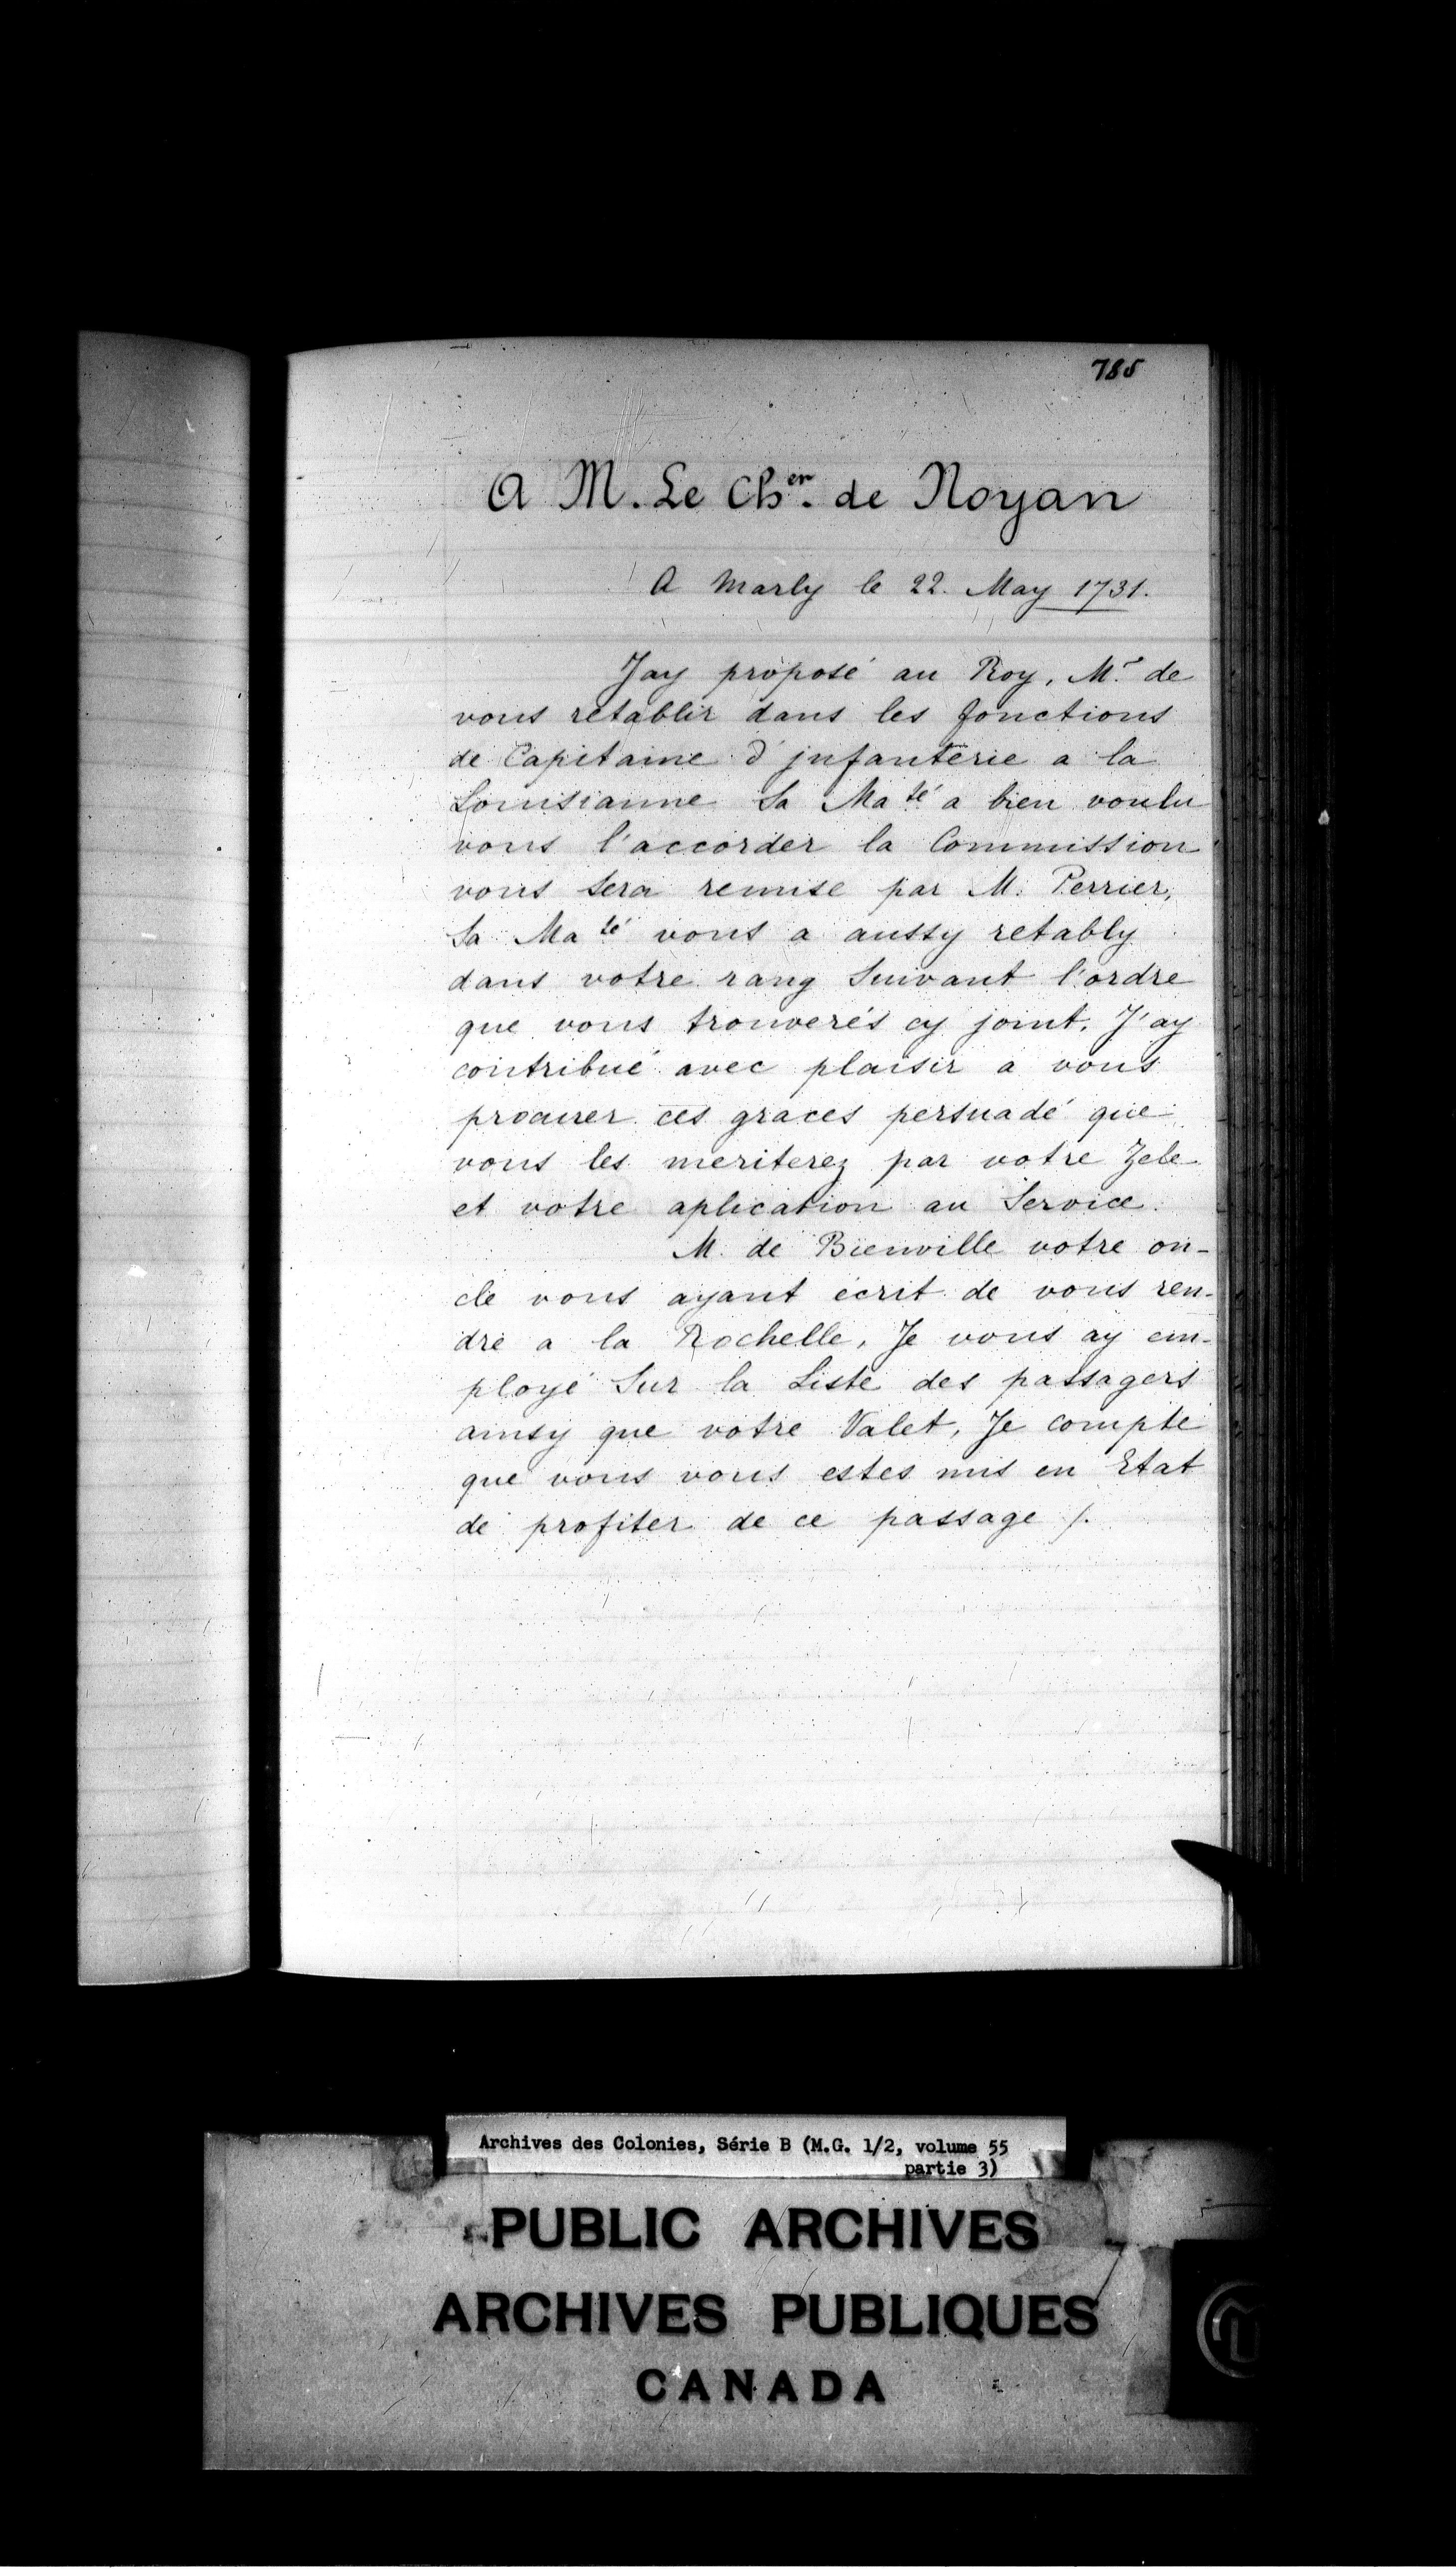 785
A M. Le Cher. de Noyan
A Marly le 22. May 1731.
Jay proposé au Roy, Mr de
vous retablir dans les fonctions
de Capitaine d'jnfanterie a la
Louisianne Sa Maté a bien voulu
vous l'accorder la Commission
vous sera remise par M. Perrier,
Sa Maté vous a aussy retably
dans votre rang Suivant l'ordre
que vous trouverés cy joint. J'ay
contribué avec plaisir a vous
procurer ces graces persuadé que
vous les meriterez par votre Zele
et votre aplication au Service.
M. de Bienville votre on-
cle vous ayant écrit de vous ren-
dre a la Rochelle, Je vous ay em-
ployé Sur la Liste des passagers
ainsy que votre Valet, Je compte
que vous vous estes mis en Etat
de profiter de ce passage /.
Archives des Colonies, Série B (M.G. 1/2, volume 55
partie 3)
PUBLIC ARCHIVES
ARCHIVES PUBLIQUES
CANADA